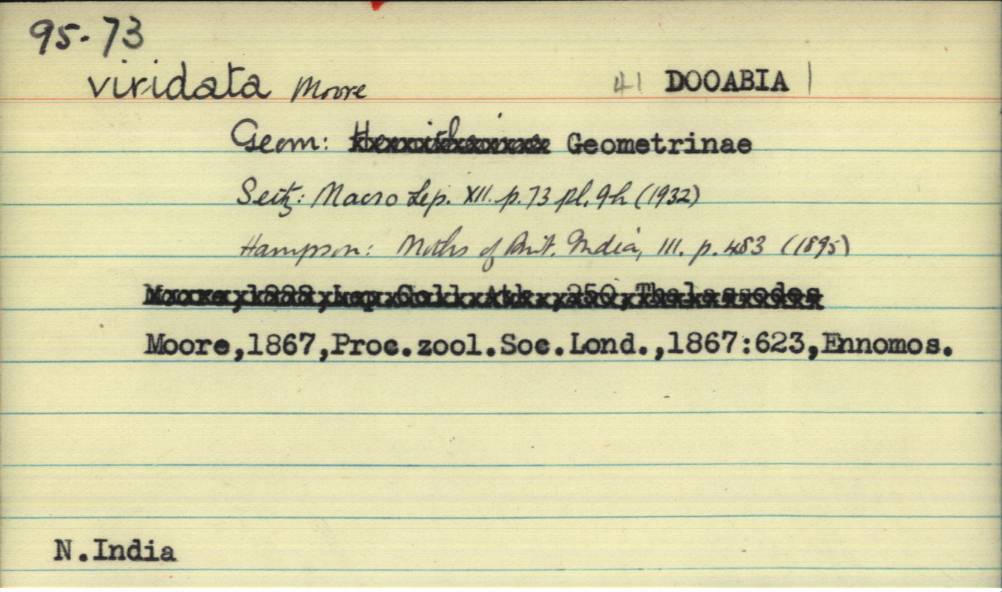 95-73
viridata Moore 41 DOOABIA
Geom: Geometrinae
Seitz: Macro Lep. XII. p. 73 pl. 9h (1932)
Hampson: Moths of Brit. India, III. p. 483 (1895)
Moore,1867,Proc.zool.Soc.Lond.,1867:623,Ennomos.
N.India